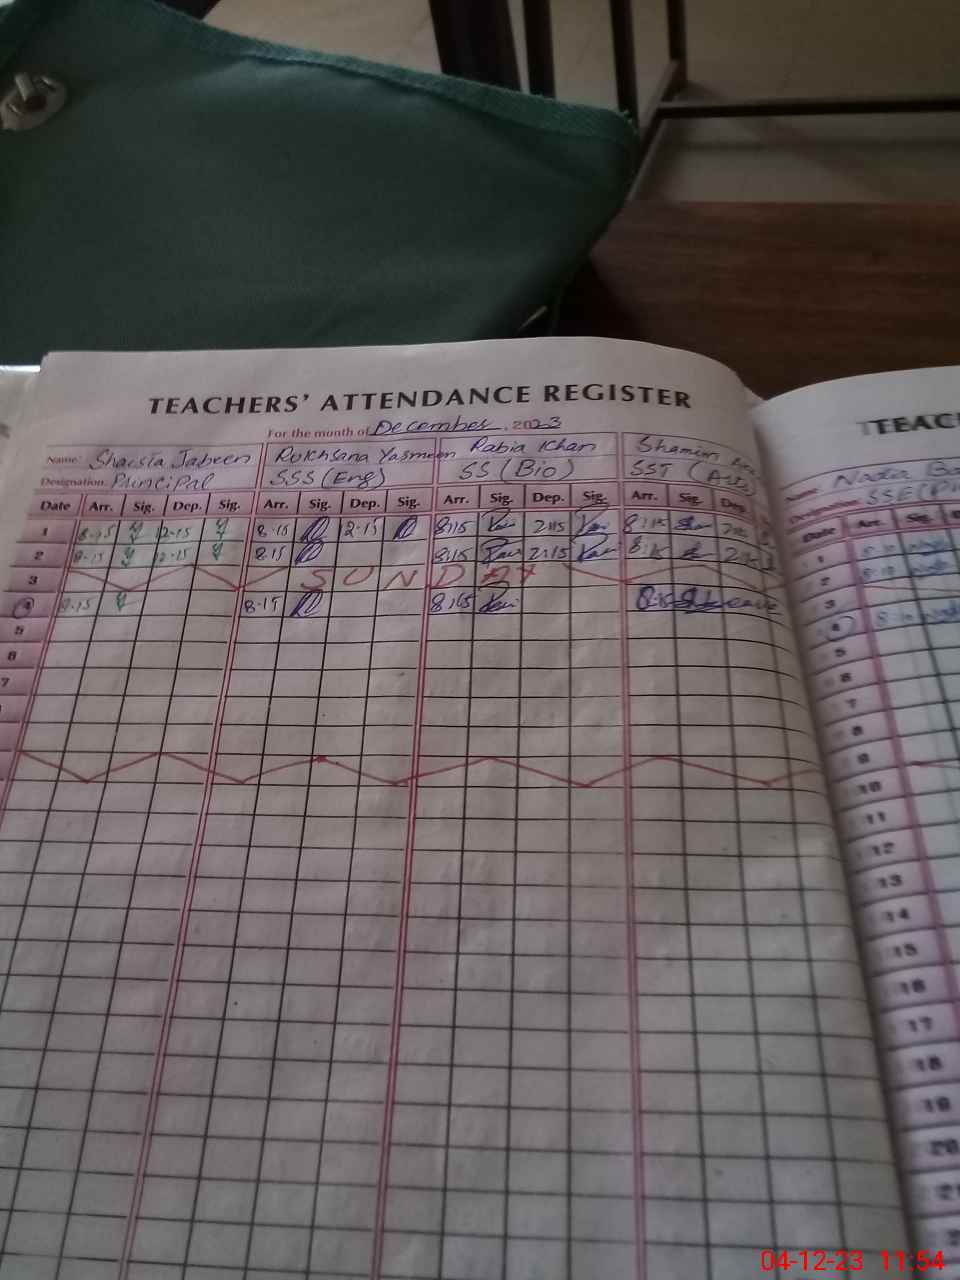 TEACHERS' ATTENDANCE REGISTER
For the month of December, 2023
Name: Shaista Jabeen Rukhsana Yasmeen Rabia Khan Shamim
Designation: Principal SSS (Eng) SS (Bio) SST (Arts)
Date Arr. Sig. Dep. Sig. Arr. Sig. Dep. Sig. Arr. Sig. Dep. Sig. Arr. Sig. Dep.
1 8-15 12-15 8-15 2-15 8:15 2:15 8:15
2 8-15 12-15 8-15 8:15 2:15 8:15
3 SUNDAY
4 8-15 8-15 8:15 8:15 Leave
5
6
7
TEAC
Name: Nadia
Designation: SSE
Date Arr. Sig.
1 8-10
2 8-10
3
4 8-10
5
6
7
8
9
10
11
12
13
14
15
16
17
18
19
20
21
04-12-23 11:54